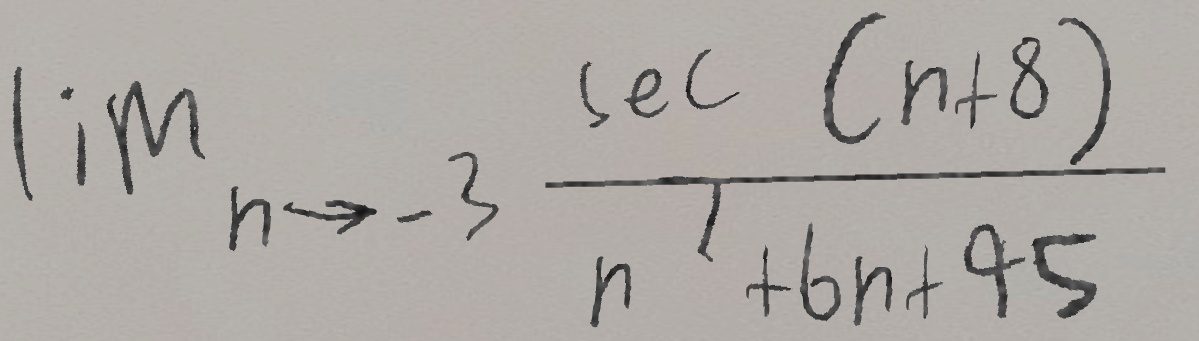 \lim_{n \to -3} \frac{\sec(n+8)}{n^7+6n+95}